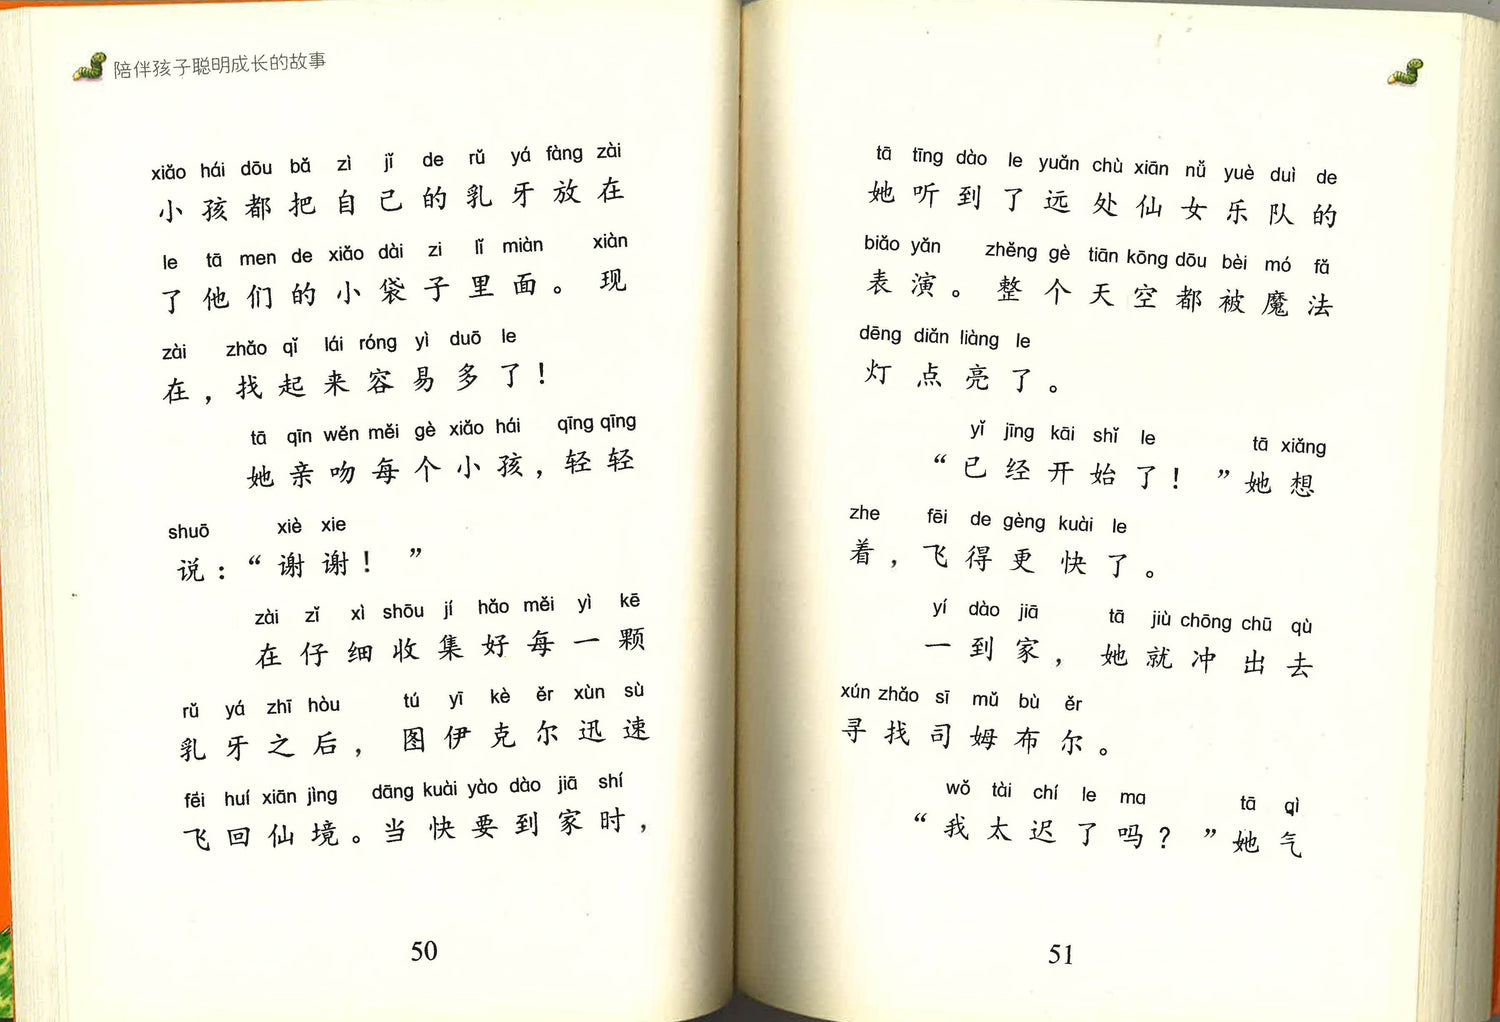 陪伴孩子聪明成长的故事
xiǎo hái dōu bǎ zì jǐ de rǔ yá fàng zài
小孩都把自己的乳牙放在
le tā men de xiǎo dài zi lǐ miàn xiàn
了他们的小袋子里面。现
zài zhǎo qǐ lái róng yì duō le
在，找起来容易多了！
tā qīn wěn měi gè xiǎo hái qīng qīng
她亲吻每个小孩，轻轻
shuō xiè xie
说：“谢谢！”
zài zǐ xì shōu jí hǎo měi yì kē
在仔细收集好每一颗
rǔ yá zhī hòu tú yī kè ěr xùn sù
乳牙之后，图伊克尔迅速
fēi huí xiān jìng dāng kuài yào dào jiā shí
飞回仙境。当快要到家时，
50
tā tīng dào le yuǎn chù xiān nǚ yuè duì de
她听到了远处仙女乐队的
biǎo yǎn zhěng gè tiān kōng dōu bèi mó fǎ
表演。整个天空都被魔法
dēng diǎn liàng le
灯点亮了。
yǐ jīng kāi shǐ le tā xiǎng
“已经开始了！”她想
zhe fēi de gèng kuài le
着，飞得更快了。
yí dào jiā tā jiù chōng chū qù
一到家，她就冲出去
xún zhǎo sī mǔ bù ěr
寻找司姆布尔。
wǒ tài chí le ma tā qì
“我太迟了吗？”她气
51